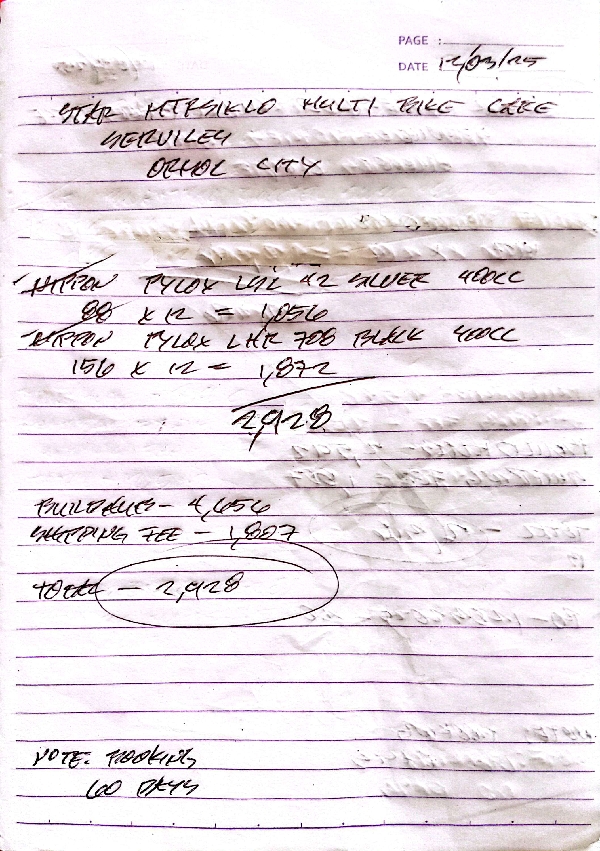 PAGE :
DATE 12/03/25
STAR MULTI BIKE CARE
SERVICES
ORMOC CITY
NIPPON PYLOX LAZ 42 SILVER 400CC
88 X 12 = 1,056
NIPPON PYLOX LHR 708 BLACK 400CC
156 X 12 = 1,872
2,928
BUILDERS - 4,656
SHIPPING FEE - 1,807
TOTAL - 2,928
NOTE: BOOKING
60 DAYS